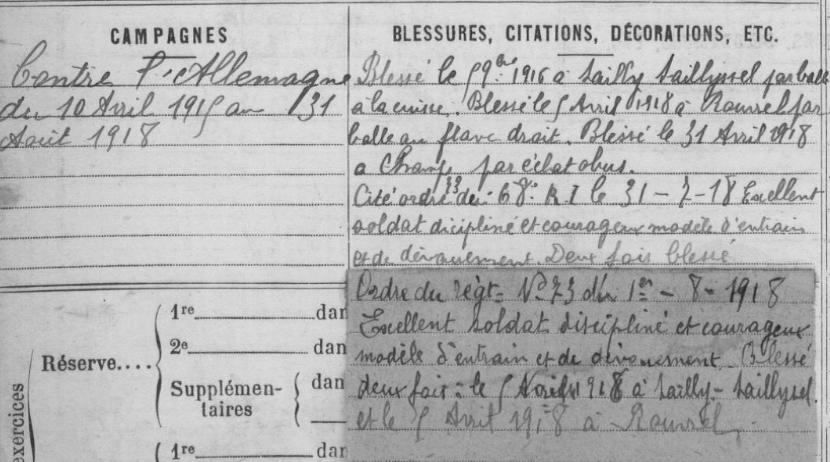 CAMPAGNES
Contre l'Allemagne
du 10 Avril 1915 au 31
Août 1918
BLESSURES, CITATIONS, DÉCORATIONS, ETC.
Blessé le 5 9bre 1916 à Sailly Saillyssel par balle
a la cuisse. Blessé le 5 Avril 1918 à Rouvrel par
balle au flanc droit. Blessé le 31 Avril 1918
a Champ par éclat obus.
Cité ordre 33 du 68e R I le 31 - 7 - 18 Exellent
soldat dicipliné et courageux modèle d'entrain
et de dévouement. Deux fois blessé
Ordre du règt = No 73 du 1er - 8 - 1918
Exellent soldat discipliné et courageux
modèle d'entrain et de dévouement. Blessé
deux fois : le 5 1918 à Sailly-Saillysel
et le 5 Avril 1918 à Rouvrel.
exercices
Réserve....
1re dan
2e dan
Supplémen-
taires
dan
1re dan